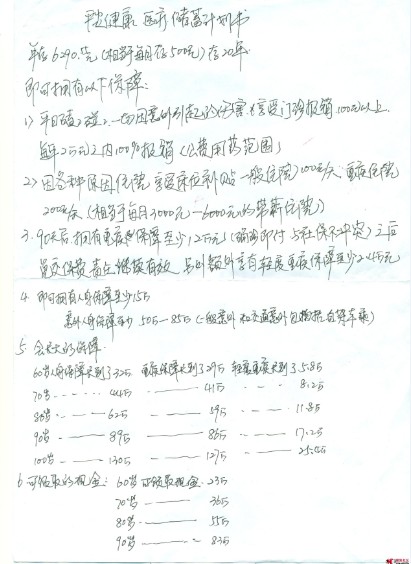 健康医疗储蓄计划书
年存6290.元 (相当于每月存500元) 存20年.
即可拥有以下保障:
1) 平日磕磕碰碰,一切因意外引起的伤害(享受门诊报销100元以上
每年2万元之内100%报销(公费用药范围)
2) 因各种原因住院 享受床位补贴 一般住院100元/天 重症住院
200元/天 (相当于每月3000元—6000元的带薪住院)
3. 90天后拥有重疾保障至少12万元 (确诊即付 与社保不冲突) 之后
保费 继续有效 另外额外享有轻度重疾保障至少2.4万元
4. 即可拥有人身保障至少15万
意外人身保障至少 50万—85万 (一般意外和交通意外包括自驾车乘)
5. 会长大的保障.
60岁人身保障长到了32万 重疾保障长到了29万 轻度重疾长到了5.8万
70岁 —— 44万 —— 41万 —— 8.2万
80岁 —— 62万 —— 59万 —— 11.8万
90岁 —— 89万 —— 86万 —— 17.2万
100岁 —— 130万 —— 127万 —— 25.4万
6. 可领取的现金: 60岁可领取现金. 23万
70岁 —— 36万
80岁 —— 55万
90岁 —— 83万